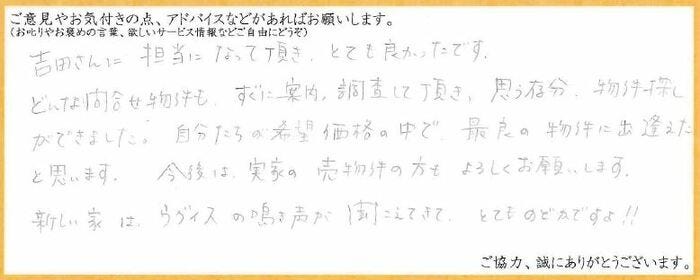 ご意見やお気付きの点、アドバイスなどがあればお願いします。
(お叱りやお褒めの言葉、欲しいサービス情報などご自由にどうぞ)
吉田さんに 担当に なって頂き、とても良かったです。
どんな問合せ物件も、すぐに案内、調査して頂き、思う存分、物件探し
ができました。自分たちの希望価格の中で、最良の物件に出逢えた
と思います。 今後は、実家の売物件の方も よろしくお願いします。
新しい家は、ウグイスの鳴き声が聞こえてきて、とてものどかですよ!!
ご協力、誠にありがとうございます。